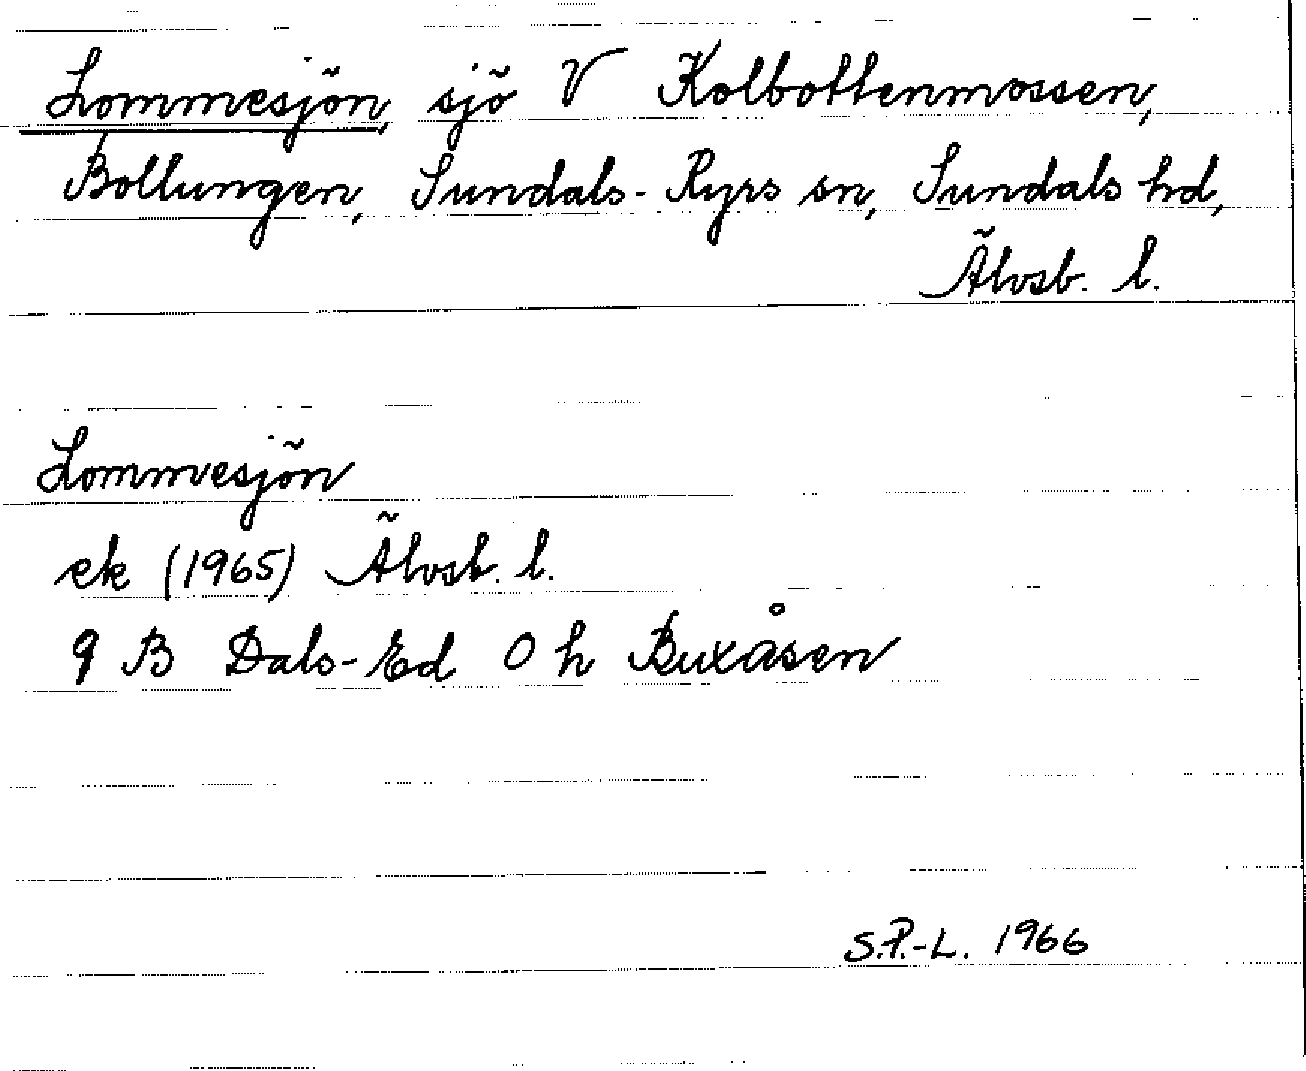 Lommesjön, sjö V Kolbottenmossen,
Bollungen, Sundals-Ryrs sn, Sundals hd,
Älvsb. l.
Lommesjön
ek (1965) Älvsb. l.
9 B Dals-Ed 0 h Buxåsen
S.P.-L. 1966